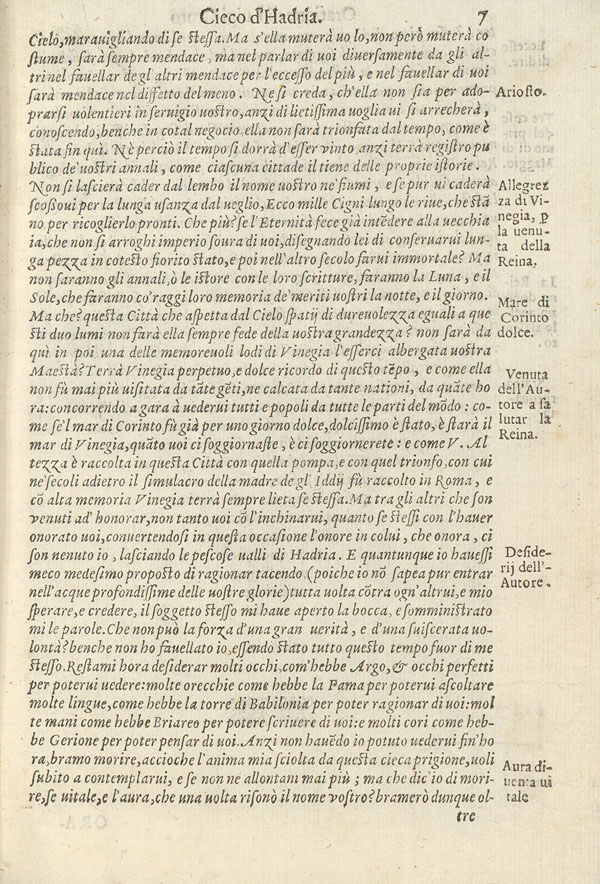 Cieco d'Hadria. 7
Cielo, marauigliando di se stessa. Ma s'ella muterà uo lo, non però muterà co
stume, sarà sempre mendace, ma nel parlar di uoi diuersamente da gli al-
tri nel fauellar de gl'altri mendace per l'eccesso del più, e nel fauellar di uoi
sarà mendace nel diffetto del meno. Ne si creda, ch'ella non sia per ado-
prarsi uolentieri in seruigio uostro, anzi di lietissima uoglia ui si arrecherà,
conoscendo, benche in cotal negocio ella non sarà trionfata dal tempo, come è
stata fin quì. Nè perciò il tempo si dorrà d'esser vinto, anzi terrà registro pu
blico de'uostri annali, come ciascuna cittade il tiene delle proprie istorie.
Non si lascierà cader dal lembo il nome uostro ne'fiumi, e se pur ui caderà
scoßoui per la lunga usanza dal ueglio, Ecco mille Cigni lungo le riue, che stā
no per ricoglierlo pronti. Che più? se l'Eternità fece già intēdere alla uecchia
ia, che non si arroghi imperio soura di uoi, disegnando lei di conseruarui lun-
ga pezza in cotesto fiorito stato, e poi nell'altro secolo farui immortale? Ma
non faranno gli annali, ò le istore con le loro scritture, faranno la Luna, e il
Sole, che faranno co'raggi loro memoria de'meriti uostri la notte, e il giorno.
Ma che? questa Città che aspetta dal Cielo spatij di dureuolezza eguali a que
sti duo lumi non farà ella sempre fede della uostra grandezza? non sarà da
quì in poi una delle memoreuoli lodi di Vinegia l'esserci albergata uostra
Maestà? Terrà Vinegia perpetuo, e dolce ricordo di questo tēpo, e come ella
non fù mai più uisitata da tāte gēti, ne calcata da tante nationi, da quāte ho
ra: concorrendo a gara à uederui tutti e popoli da tutte le parti del mōdo: co-
me se'l mar di Corinto fù già per uno giorno dolce, dolcissimo è stato, è starà il
mar di Vinegia, quāto uoi ci soggiornaste, è ci soggiornerete: e come V. Al
tezza è raccolta in questa Città con quella pompa, e con quel trionfo, con cui
ne'secoli adietro il simulacro della madre de gl'Iddij fù raccolto in Roma, e
cō alta memoria Vinegia terrà sempre lieta se stessa. Ma tra gli altri che son
venuti ad'honorar, non tanto uoi cō l'inchinarui, quanto se stessi con l'hauer
onorato uoi, conuertendosi in questa occasione l'onore in colui, che onora, ci
son nenuto io, lasciando le pescose ualli di Hadria. E quantunque io hauessi
meco medesimo proposto di ragionar tacendo (poiche io nō sapea pur entrar
nell'acque profondissime delle uostre glorie) tutta uolta cōtra ogn'altrui, e mio
sperare, e credere, il soggetto stesso mi haue aperto la bocca, e somministrato
mi le parole. Che non può la forza d'una gran uerità, e d'una suiscerata uo-
lontà? benche non ho fauellato io, essendo stato tutto questo tempo fuor di me
stesso. Restami hora desiderar molti occhi, com'hebbe Argo, & occhi perfetti
per poterui uedere: molte orecchie come hebbe la Fama per poterui ascoltare
molte lingue, come hebbe la torre di Babilonia per poter ragionar di uoi: mol
te mani come hebbe Briareo per potere scriuere di uoi: e molti cori come heb-
be Gerione per poter pensar di uoi. Anzi non hauēdo io potuto uederui fin'ho
ra, bramo morire, accioche l'anima mia sciolta da questa cieca prigione, uoli
subito a contemplarui, e se non ne allontani mai più; ma che dic'io di mori-
re, se uitale, e l'aura, che una uolta risonò il nome vostro? bramerò dunque ol-
tre
Ariosto.
Allegrez
za di Vi-
negia, p
la uenu-
ta della
Reina.
Mare di
Corinto
dolce.
Venuta
dell'Au-
tore a sa
lutar la
Reina.
Deside-
rij dell'-
Autore.
Aura di-
uenta ui
tale